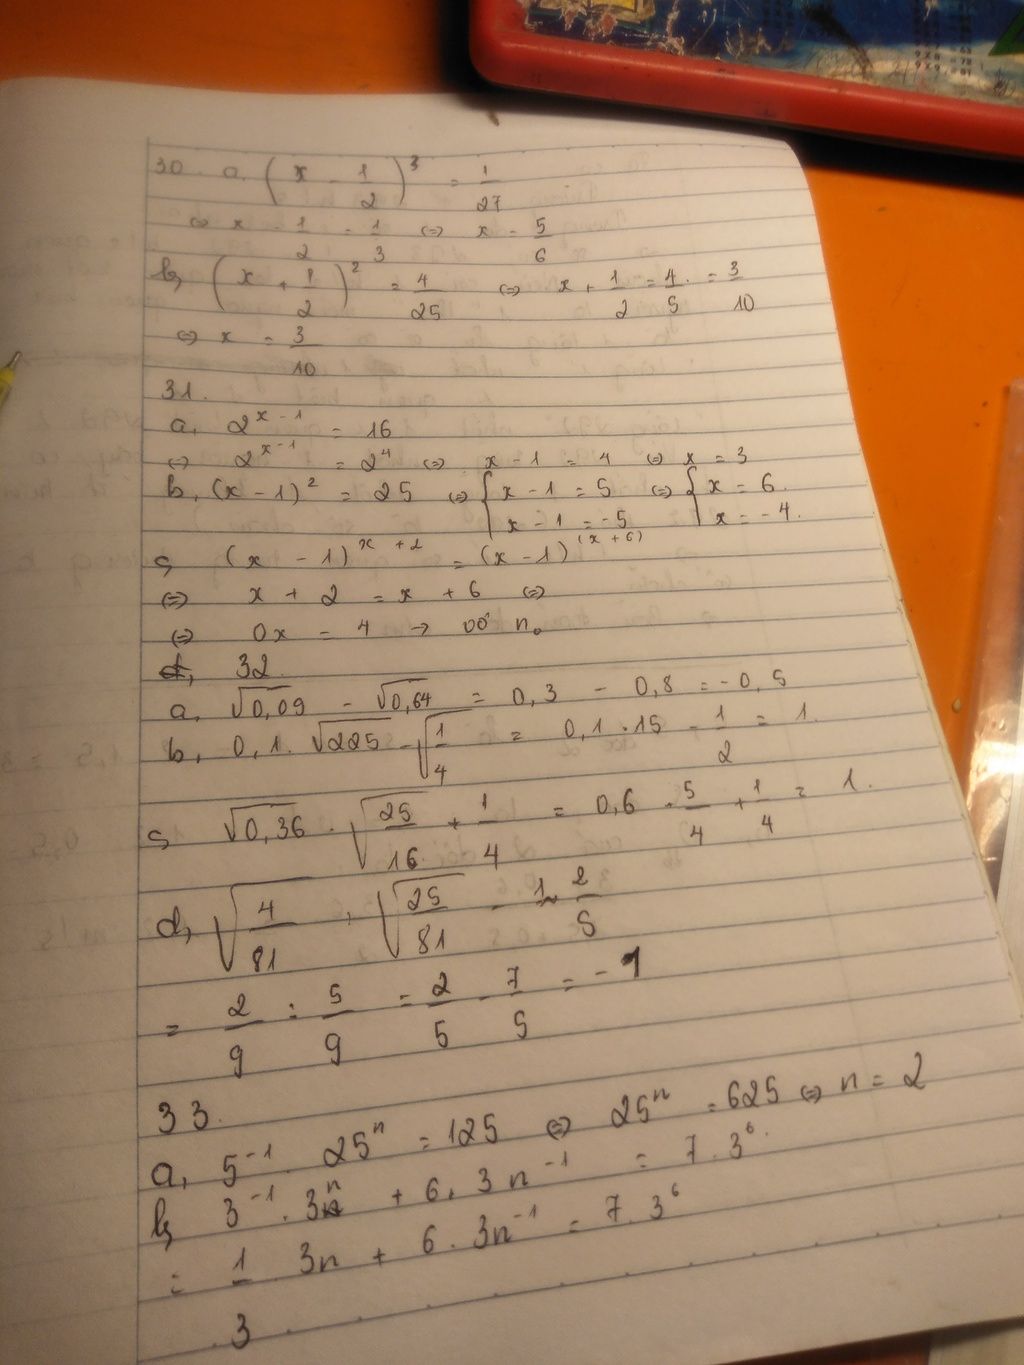 30. a, (x - 1/2)³ = 1/27
⇔ x - 1/2 = 1/3 ⇔ x = 5/6
b, (x + 1/2)² = 4/25 ⇔ x + 1/2 = 4/5 = 3/10
⇔ x = 3/10
31.
a, 2^(x-1) = 16
⇔ 2^(x-1) = 2⁴ ⇔ x - 1 = 4 ⇔ x = 3
b, (x - 1)² = 25 ⇔ { x - 1 = 5 ⇔ { x = 6.
x - 1 = -5 x = -4.
c, (x - 1)^(x+2) = (x - 1)^(x+6)
⇔ x + 2 = x + 6 ⇔
⇔ 0x = 4 → oo n.
32.
a, √0,09 - √0,64 = 0,3 - 0,8 = -0,5
b, 0,1 . √225 - √(1/4) = 0,1 . 15 - 1/2 = 1.
c, √0,36 . √(25/16) + 1/4 = 0,6 . 5/4 + 1/4 = 1.
d, √(4/81) : √(25/81) - 1 2/5
= 2/9 : 5/9 = 2/5 - 7/5 = -1
33.
a, 5⁻¹ . 25ⁿ = 125 ⇔ 25ⁿ = 625 ⇔ n = 2
b, 3⁻¹ . 3ⁿ + 6 . 3n⁻¹ = 7 . 3⁶.
= 1/3 . 3n + 6 . 3n⁻¹ = 7 . 3⁶